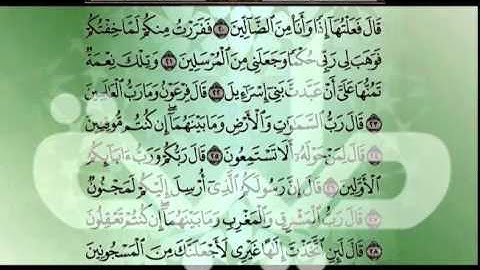 قَالَ فَعَلْتُهَآ إِذًا وَأَنَا۠ مِنَ ٱلضَّآلِّينَ ٢٠ فَفَرَرْتُ مِنكُمْ لَمَّا خِفْتُكُمْ
فَوَهَبَ لِى رَبِّى حُكْمًا وَجَعَلَنِى مِنَ ٱلْمُرْسَلِينَ ٢١ وَتِلْكَ نِعْمَةٌ
تَمُنُّهَا عَلَىَّ أَنْ عَبَّدتَّ بَنِىٓ إِسْرَٰٓءِيلَ ٢٢ قَالَ فِرْعَوْنُ وَمَا رَبُّ ٱلْعَٰلَمِينَ
٢٣ قَالَ رَبُّ ٱلسَّمَٰوَٰتِ وَٱلْأَرْضِ وَمَا بَيْنَهُمَآ ۖ إِن كُنتُم مُّوقِنِينَ
٢٤ قَالَ لِمَنْ حَوْلَهُۥٓ أَلَا تَسْتَمِعُونَ ٢٥ قَالَ رَبُّكُمْ وَرَبُّ ءَابَآئِكُمُ
ٱلْأَوَّلِينَ ٢٦ قَالَ إِنَّ رَسُولَكُمُ ٱلَّذِىٓ أُرْسِلَ إِلَيْكُمْ لَمَجْنُونٌ
٢٧ قَالَ رَبُّ ٱلْمَشْرِقِ وَٱلْمَغْرِبِ وَمَا بَيْنَهُمَآ ۖ إِن كُنتُمْ تَعْقِلُونَ
٢٨ قَالَ لَئِنِ ٱتَّخَذْتَ إِلَٰهًا غَيْرِى لَأَجْعَلَنَّكَ مِنَ ٱلْمَسْجُونِينَ